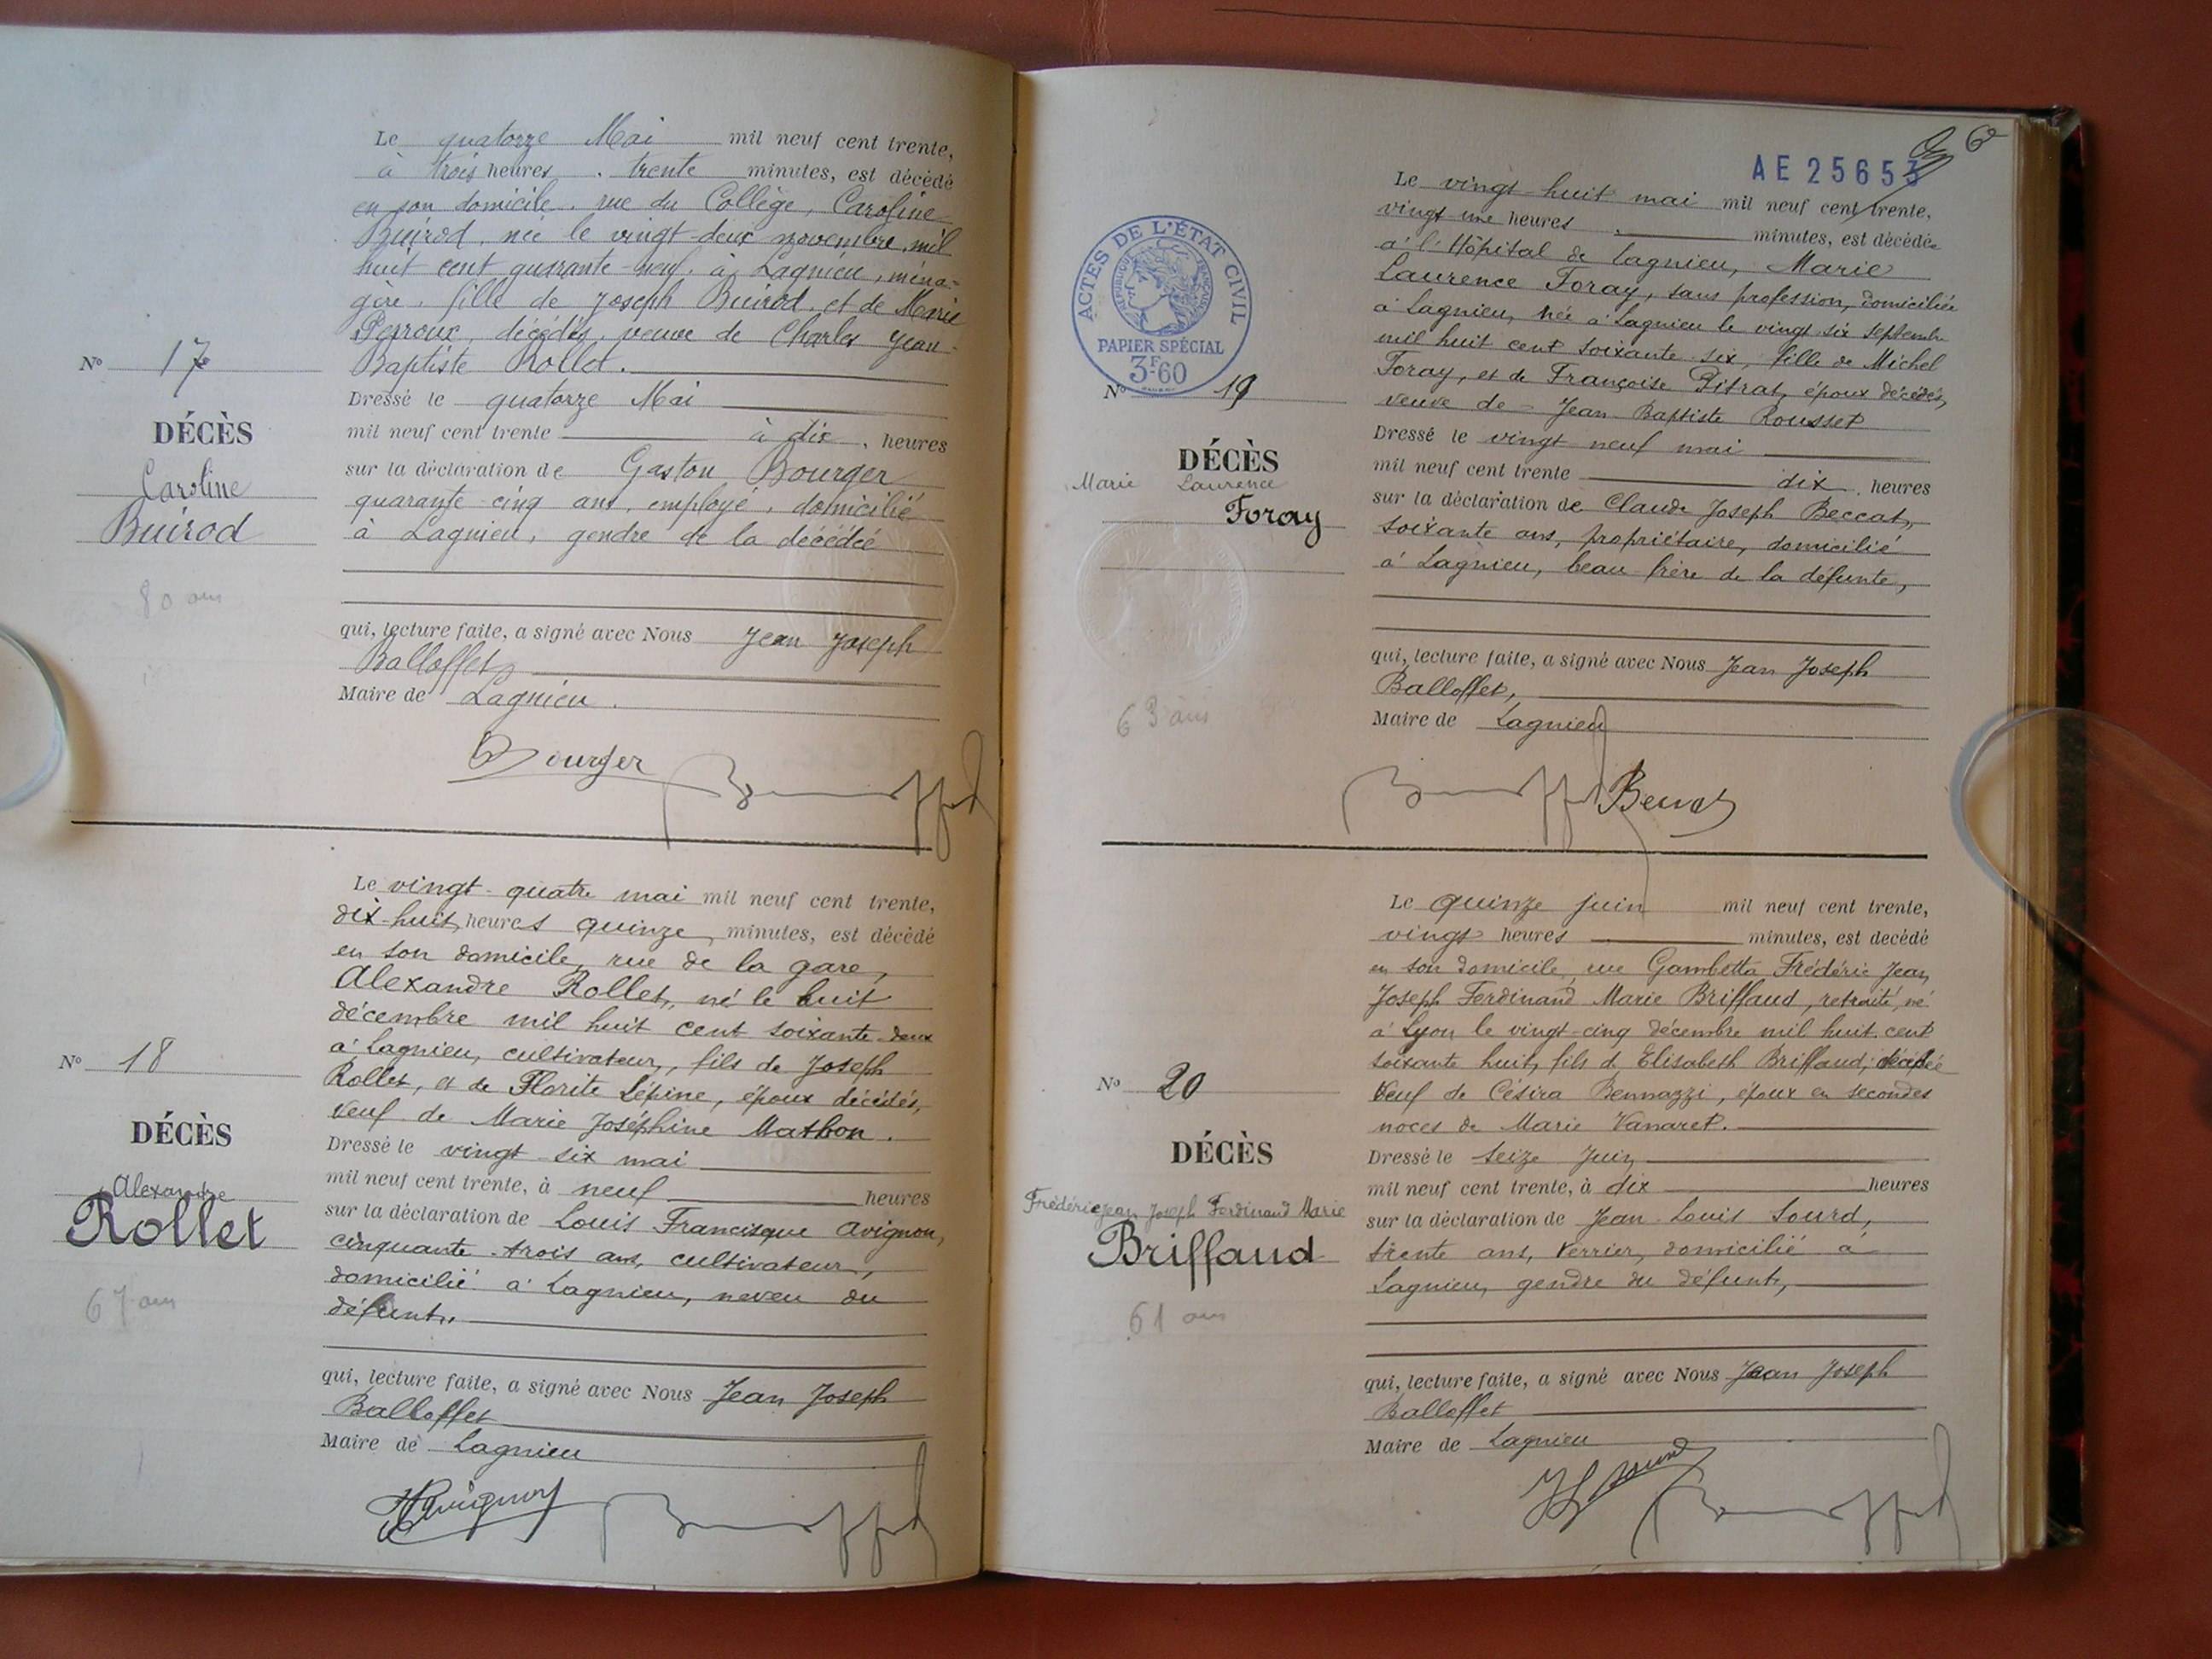 Le quatorze Mai mil neuf cent trente,
à trois heures trente minutes, est décédé
en son domicile, rue du Collège, Caroline
Buirod, née le vingt-deux novembre mil
huit cent quarante-neuf, à Lagnieu, ména-
gère, fille de Joseph Buirod, et de Marie
Perroux, décédés, veuve de Charles Jean-
Baptiste Rollet.
N° 17
DÉCÈS
Caroline
Buirod
80 ans
Dressé le quatorze Mai
mil neuf cent trente à dix heures
sur la déclaration de Gaston Bourger
quarante-cinq ans, employé, domicilié
à Lagnieu, gendre de la décédée
qui, lecture faite, a signé avec Nous Jean Joseph
Balloffet
Maire de Lagnieu.
Bourger
Le vingt-quatre mai mil neuf cent trente,
dix-huit heures quinze minutes, est décédé
en son domicile, rue de la gare,
Alexandre Rollet, né le huit
décembre mil huit cent soixante-deux
à Lagnieu, cultivateur, fils de Joseph
Rollet, et de Florite Lépine, époux décédés,
veuf de Marie Joséphine Mathon.
N° 18
DÉCÈS
Alexandre
Rollet
67 ans
Dressé le vingt-six mai
mil neuf cent trente, à neuf heures
sur la déclaration de Louis Francisque Avignon,
cinquante-trois ans, cultivateur,
domicilié à Lagnieu, neveu du
défunt,
qui, lecture faite, a signé avec Nous Jean Joseph
Balloffet
Maire de Lagnieu
Avignon
6
AE 25653
ACTES DE L'ÉTAT CIVIL
RÉPUBLIQUE FRANÇAISE
PAPIER SPÉCIAL
3F.60
Le vingt-huit mai mil neuf cent trente,
vingt une heures minutes, est décédée
à l'Hôpital de Lagnieu, Marie
Laurence Foray, sans profession, domiciliée
à Lagnieu, née à Lagnieu le vingt-six septembre
mil huit cent soixante-six, fille de Michel
Foray, et de Françoise Pitrat, époux décédés,
veuve de Jean Baptiste Rousset
N° 19
DÉCÈS
Marie Laurence
Foray
63 ans
Dressé le vingt neuf mai
mil neuf cent trente dix heures
sur la déclaration de Claude Joseph Beccat,
soixante ans, propriétaire, domicilié
à Lagnieu, beau frère de la défunte,
qui, lecture faite, a signé avec Nous Jean Joseph
Balloffet,
Maire de Lagnieu
Beccat
Le quinze juin mil neuf cent trente,
vingt heures minutes, est décédé
en son domicile, rue Gambetta Frédéric Jean
Joseph Ferdinand Marie Briffaud, retraité, né
à Lyon le vingt-cinq décembre mil huit cent
soixante huit, fils d'Elisabeth Briffaud, décédée
veuf de Césira Bennazzi, époux en secondes
noces de Marie Vanaret.
N° 20
DÉCÈS
Frédéric Jean Joseph Ferdinand Marie
Briffaud
61 ans
Dressé le seize Juin
mil neuf cent trente, à dix heures
sur la déclaration de Jean-Louis Sourd,
trente ans, verrier, domicilié à
Lagnieu, gendre du défunt,
qui, lecture faite, a signé avec Nous Jean Joseph
Balloffet
Maire de Lagnieu
JL Sourd